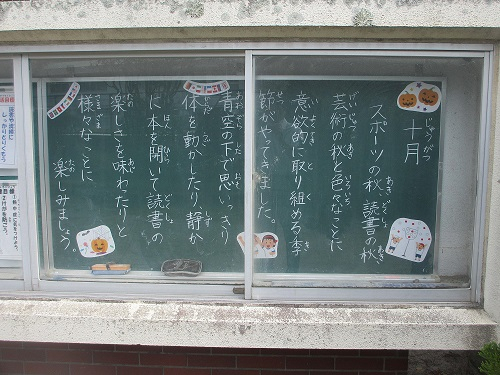 十月
スポーツの秋、読書の秋
芸術の秋と色々なことに
意欲的に取り組める季
節がやってきました。
青空の下で思いっきり
体を動かしたり、静か
に本を開いて読書の
楽しさを味わたりと
様々なことに 楽しみましょう。